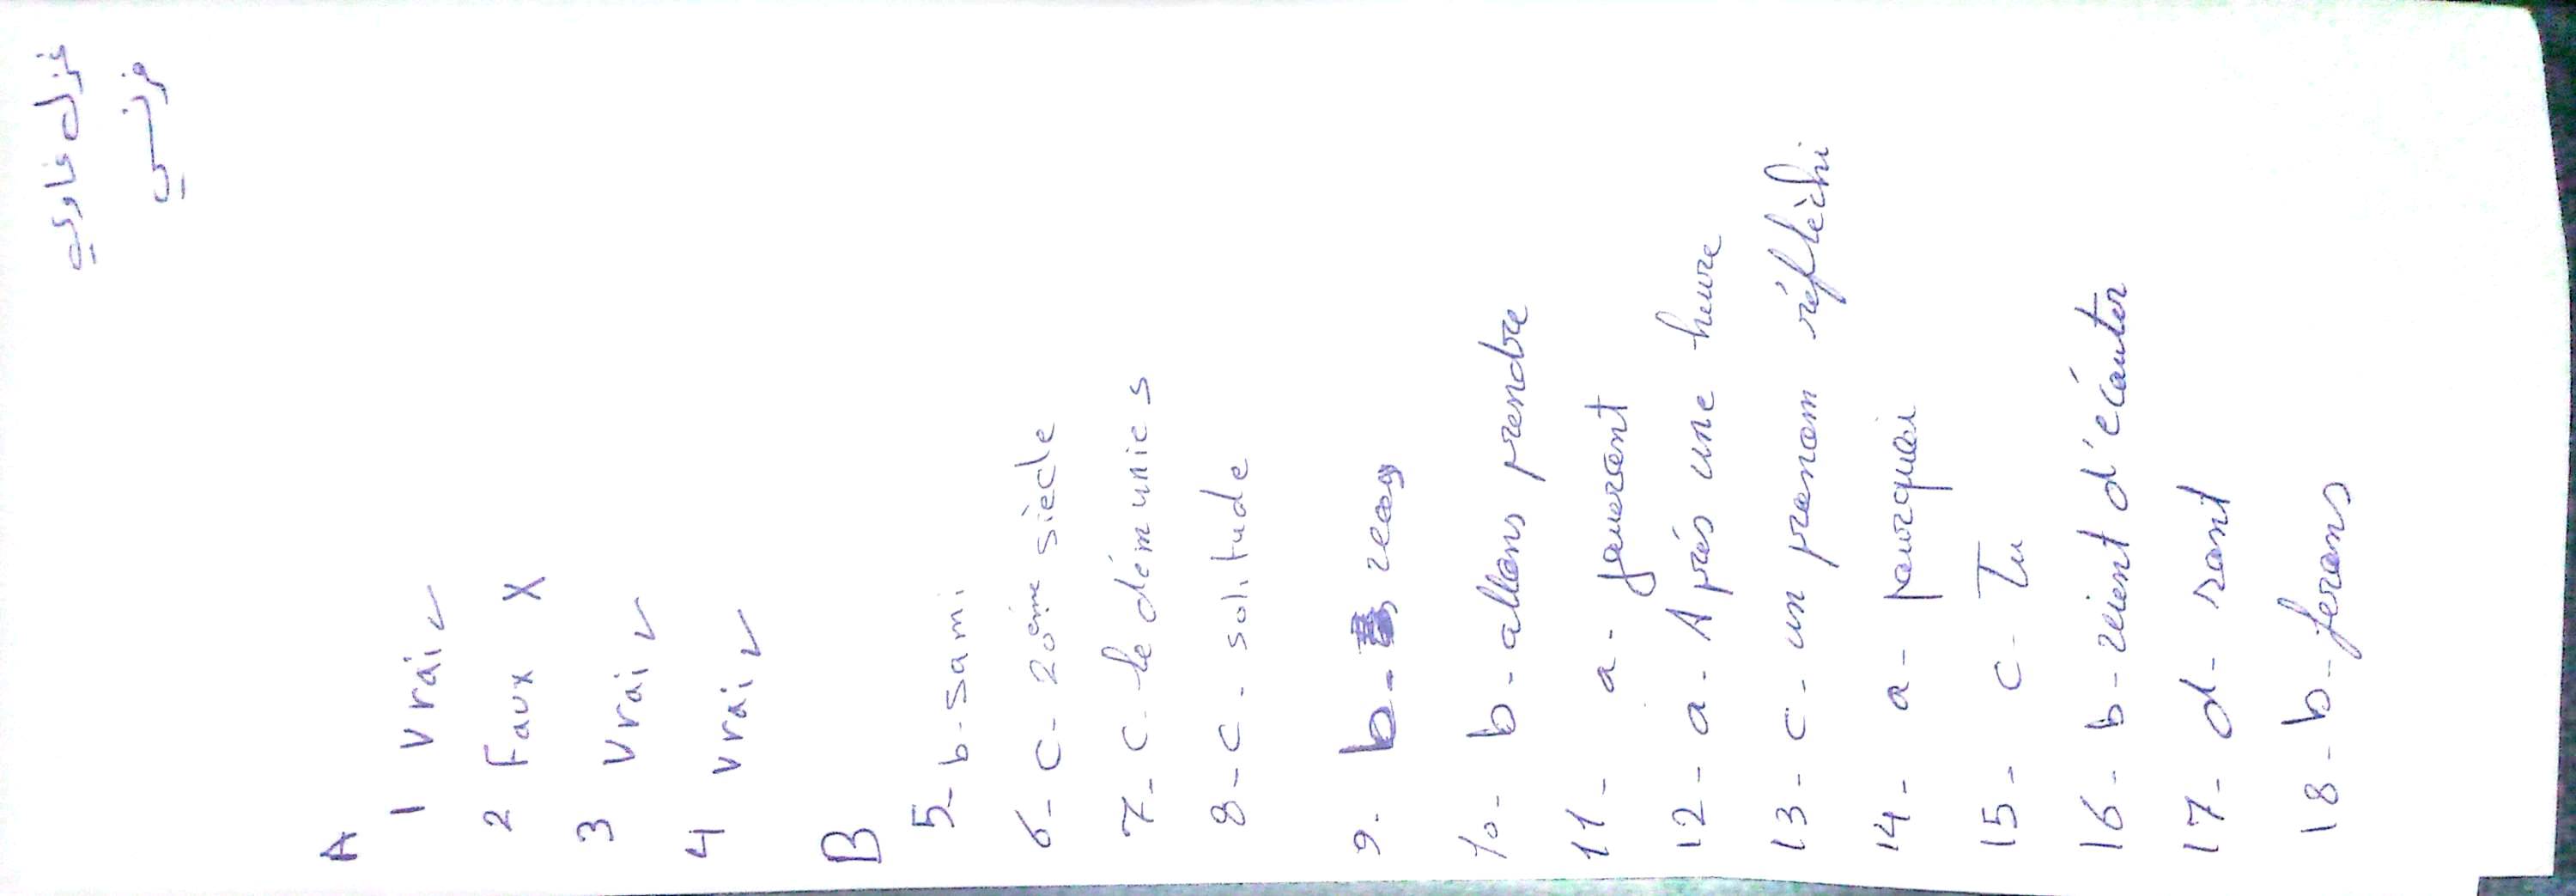 فرنسي
A
1 Vrai ✓
2 Faux X
3 Vrai ✓
4 Vrai ✓
B
5- b- sami
6- c- 20ème siècle
7- c- le démunies
8- c- solitude
9- b-
10- b- allons prendre
11- a-
12- a- Après une heure
13- c- un pronom réflèchi
14- a- pourquoi
15- c- Tu
16- b- vient d'écouter
17- d- sont
18- b- ferons